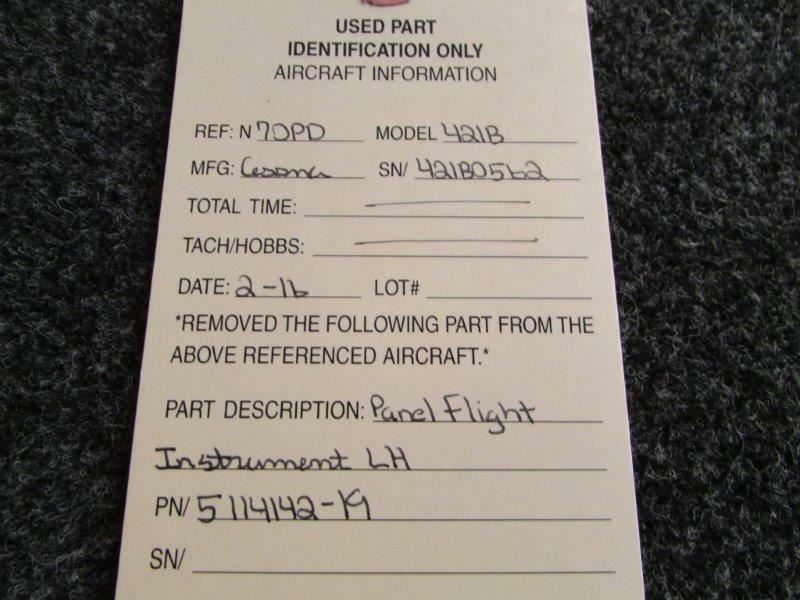 USED PART
IDENTIFICATION ONLY
AIRCRAFT INFORMATION
REF: N 70PD MODEL 421B
MFG: Cessna SN/ 421B0562
TOTAL TIME:
TACH/HOBBS:
DATE: 2-16 LOT#
*REMOVED THE FOLLOWING PART FROM THE
ABOVE REFERENCED AIRCRAFT.*
PART DESCRIPTION: Panel Flight
Instrument LH
PN/ 5114142-19
SN/